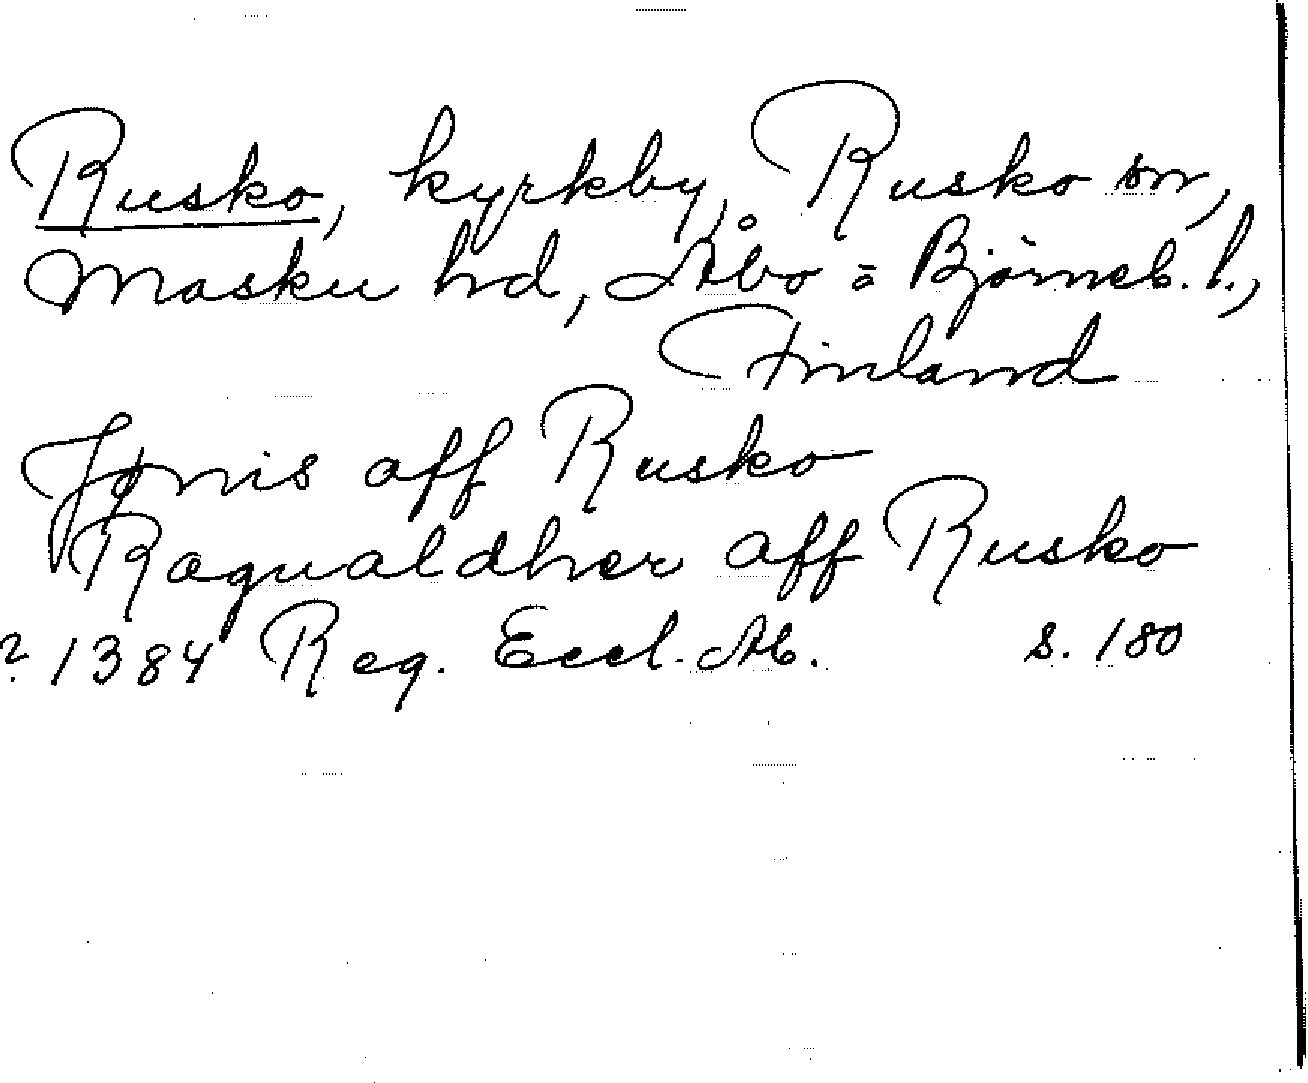 Rusko, kyrkby, Rusko sn,
Masku hd, Åbo = Björneb. l.,
Finland
Jønis aff Rusko
Ragualdher aff Rusko
1384 Reg. Eccl. Ab. s. 180